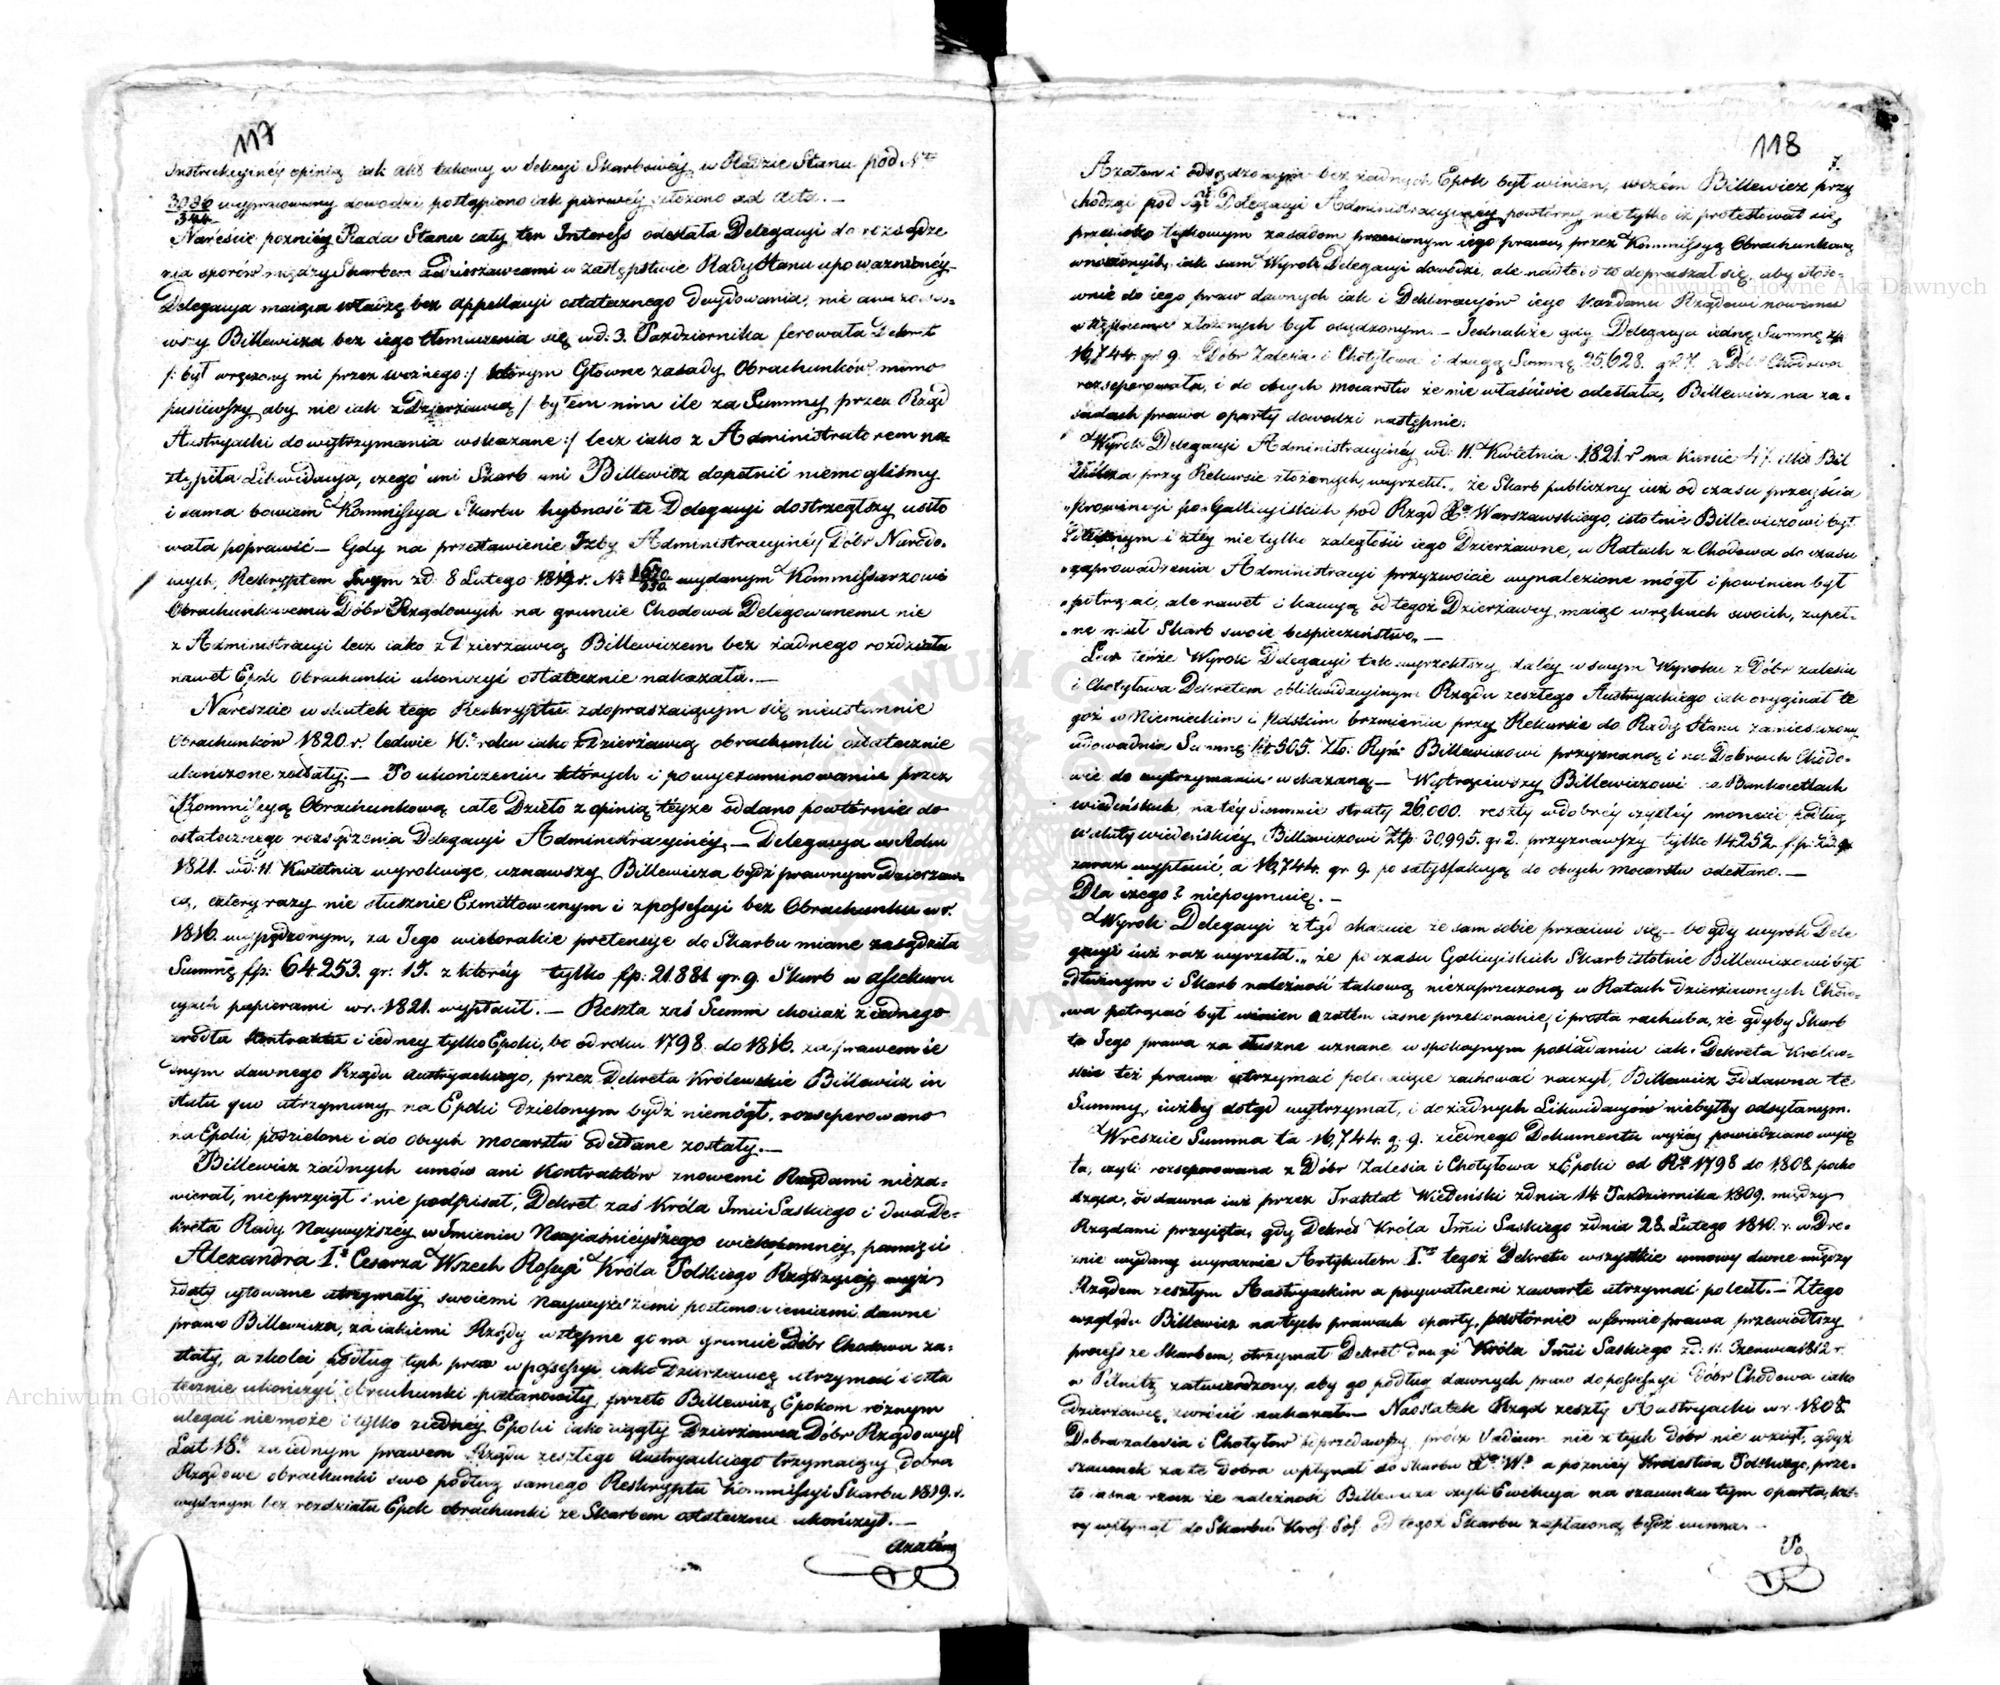 117
Instrukcyinéy opinią iak akt takowy w Sekcyi Skarbowéy w Radzie Stanu pod Nrem
3086/344 wypracowany dowodzi postąpiono iak pierwéy złożono ad acta. —
Nareście poźniéy Rada Stanu cały ten Interess odesłała Delegacyi do rozsądze
nia sporów między Skarbem a Dzierżawcami w zastępstwie Rady Stanu upoważnionéy
Delegacya maiąca władzę bez appellacyi ostatecznego decydowania, nie
wszy Billewicza bez iego tłomaczenia się w d: 3. Pazdziernika ferowała Dekret
/: był wręczony mi przez woznego :/ którym Główne zasady Obrachunków mimo
puściwszy, aby nie iak z Dzierżawcą / byłem nim ile za Summy przez Rząd
Austryacki do wytrzymania wskazane :/ lecz iako z Administratorem na
stąpiła Likwidacya, czego ani Skarb ani Billewicz dopełnić niemogliśmy
i sama bowiem Kommissya Skarbu te Delegacyi dostrzegłszy usiło
wała poprawić — Gdy na przedstawienie Izby Administracyinéy Dóbr Narodo-
wych, Reskryptem swym zd: 8 Lutego 1819 r. Nr wydanym Kommissarzowi
Obrachunkowemu Dóbr Rządowych na gruncie Chodowa Delegowanemu nie
z Administracyi lecz iako z Dzierżawcą Billewiczem bez żadnego rozdziału
nawet Epok Obrachunki ukończyć ostatecznie nakazała. —
Nareszcie w skutek tego Reskryptu zdopraszaiącym się nieustannie
Obrachunków 1820. r. ledwie tego roku iako z dzierżawcą obrachunki ostatecznie
ukończone zostały. — Po ukończeniu których i po wyexaminowaniu przez
Kommissyą Obrachunkową całe Dzieło z opinią téyże oddano powtórnie do
ostatecznego rozsądzenia Delegacyi Administracyinéy. — Delegacya w Roku
1821. w d: 11 Kwietnia wyrokuiąc, uznawszy Billewicza bydź prawnym Dzierżaw
cą, cztery razy nie słusznie Exmittowanym i z possessyi bez Obrachunku w r.
1816. wypędzonym, za Iego wielorakie pretensye do Skarbu miane zasądziła
Summę fp: 64253. gr: 15. z któréy tylko fp: 21881 gr. 9. Skarb w
papierami w r. 1821. wypłacił. — Reszta zaś Summ chociaż z iednego
źródła Kontraktu i iedney tylko Epoki, bo od roku 1798. do 1816. za prawem ie
dnym dawnego Rządu Austryackiego, przez Dekreta Królewskie Billewicz in
statu quo utrzymany na Epoki dzielonym bydź niemógł, rozseperowano
na Epoki podzielone i do obcych mocarstw odesłane zostały. —
Billewicz żadnych umów ani Kontraktów z nowemi Rządami nieza-
wierał, nie przyiął i nie podpisał, Dekret zaś Króla Imci Saskiego i dwa De-
kreta Rady Naywyższéy w Imieniu Nayiaśnieyszego wiekopomnéy pamięci
Alexandra I. Cesarza Wszech Rossyi Króla Polskiego
cytowane utrzymały swoiemi Naywyższemi postanowieniami dawne
prawo Billewicza, za iakiemi Rządy wstępne go na gruncie Dóbr Chodowa za-
stały, a zkolei podług tych praw w possessyi iako Dzierżawcę utrzymać i osta
tecznie ukończyć obrachunki postanowiły, przeto Billewicz Epokom różnym
ulegać nie może i tylko iedney Epoki iako ciągły Dzierżawca Dóbr Rządowych
Lat 18. za iednym prawem Rządu zeszłego Austryackiego trzymaiący dobra
Rządowe obrachunki swe podług samego Reskryptu Kommissyi Skarbu 1819. r.
wydanym bez rozdziału Epok obrachunki ze Skarbem ostatecznie ukończył. —
Azatém
118
7.
Azatem i odsądzonym bez żadnych Epok być winien, wczém Billewicz przy
chodząc pod Sąd Delegacyi Administracyinéy powtórny nie tylko iż protestował się
przeciwko tychowym zasadom przeciwnym iego prawu, przez Kommissyą Obrachunkową
wnoszonych, iak sam Wyrok Delegacyi dowodzi, ale nadto i o to dopraszał się, aby stoso-
wnie do iego praw dawnych iak i Deklaracyiów iego każdemu Rządowi nowemu
złożonych był osądzonym. — Jednakże gdy Delegacya iedną Summę zł
16,744. gr. 9. z Dóbr Zalesia i Chotyłowa i drugą Summę 25,628. gr. 7. z Dóbr Chodowa
rozseperowała, i do obcych mocarstw że nie właściwie odesłała, Billewicz na za-
sadach prawa oparty dowodzi następnie:
Wyrok Delegacyi Administracyinéy w d: 11. Kwietnia 1821. r. na karcie 47. Akt Bil
lewicza przy Rekursie złożonych, wyrzekł „ że Skarb publiczny iuż od czasu przeyścia
„prowincyi po-Gallicyiskich pod Rząd Xa Warszawskiego, istotnie Billewiczowi był
dłużnym i ztéy nie tylko zaległości iego Dzierżawne, w Ratach z Chodowa do czasu
„zaprowadzenia Administracyi przyzwoicie wynalezione mógł i powinien był
„potrącać, ale nawet i kaucyą od tegoż Dzierżawcy maiąc w rękach swoich, zupeł-
„ne miał Skarb swoie bespieczeństwo„ —
Lecz tenże Wyrok Delegacyi tak wyrzekłszy, daléy w swym Wyroku z Dóbr Zalesia
i Chotyłowa Dekretem oblikwidacyinym Rządu zeszłego Austryackiego iak oryginał te
goż w Niemieckim i Polskim brzmieniu przy Rekursie do Rady Stanu zamieszczony
udowadnia Summę Zło: Ryń: Billewiczowi przyznaną i na Dobrach Chodo-
wie do wytrzymania wskazaną — Wytrąciwszy Billewiczowi na Bankocetlach
wiedeńskich, na téy Summie straty 26,000. reszty w dobréy czystéy monecie podług
waluty wiedeńskiéy Billewiczowi złp. 30,995. gr 2. przyznawszy tylko 14252. f.p. 23. gr
zaraz wypłacić, a 16,744. gr 9. po satysfakcyą do obcych mocarstw odesłano. —
Dla czego? niepoymuię. —
Wyrok Delegacyi ztąd okazuie że sam sobie przeciwi się — bo gdy wyrok Dele
gacyi iuż raz wyrzekł „ że po czasu Gallicyiskich Skarb istotnie Billewiczowi był
„dłużnym i Skarb należność takową niezaprzeczoną w Ratach dzierżawnych Chodo-
„wa potrącać był winien azatém iasne przekonanie, i prosta rachuba, że gdyby Skarb
te Iego prawa za słuszne uznane w spokoynym posiadaniu iak Dekreta Królew-
skie też prawa utrzymać polecaiące zachować raczył, Billewicz oddawna te
Summy, iużby dotąd wytrzymał, i do żadnych Likwidacyiów niebyłby odsyłanym.
Wreszcie Summa ta 16,744. g. 9. ziednego Dokumentu wyżéy powiedziano wyię
ta, czyli rozseperowana z Dóbr Zalesia i Chotyłowa z Epoki od Rku 1798 do 1808 pocho
dząca, oddawna iuż przez Traktat Wiedeński zdnia 14 Pazdziernika 1809. między
Rządami przyięta, gdy Dekret Króla Imci Saskiego zdnia 28. Lutego 1810. r. w Dre-
znie wydany wyraznie Artykułem I. tegoż Dekretu wszystkie umowy dawne między
Rządem zeszłym Austryackim a prywatnemi zawarte utrzymać polecił. — Ztego
względu Billewicz na tych prawach oparty, powtórnie w formie prawa przewiódłszy
process ze Skarbem, otrzymał Dekret drugi Króla Imci Saskiego zd: 11 Czerwca 1812 r.
w Pilnitz zatwierdzony, aby go podług dawnych praw do possessyi Dóbr Chodowa iako
Dzierżawcę zwrócić nakazał — Naostatek Rząd zeszły Austryacki w r. 1808.
Dobra Zalesia i Chotyłów sprzedawszy, prócz Vadium nic z tych dóbr nie wziął, gdyż
szacunek za te Dobra wpłynął do Skarbu Xa Wo a poźniéy Królestwa Polskiego, prze-
to iasna rzecz że należność Billewicza czyli Ewikcya na szacunku tym oparta, któ-
ry wpłynął do Skarbu Krol. Pol. od tegoż Skarbu zapłaconą bydź winna. —
Po
Archiwum Główne Akt Dawnych
Archiwum Główne Akt Dawnych